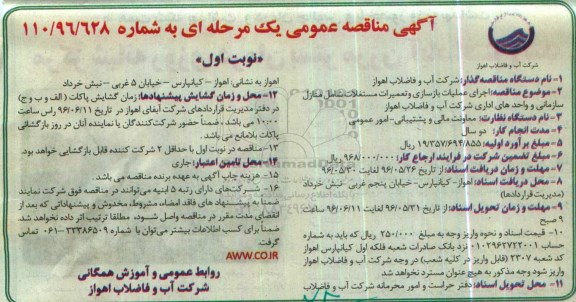 آگهی مناقصه عمومی یک مرحله ای به شماره ۱۱۰/۹۶/۶۲۸
شرکت آب و فاضلاب اهواز
«نوبت اول»
۱- نام دستگاه مناقصه‌گذار: شرکت آب و فاضلاب اهواز
۲- موضوع مناقصه: اجرای عملیات بازسازی و تعمیرات مستغلات شامل منازل
سازمانی و واحد های اداری شرکت آب و فاضلاب اهواز
۳- نام دستگاه نظارت: معاونت مالی و پشتیبانی- امور عمومی
۴- مدت انجام کار: دو سال
۵- مبلغ برآورد اولیه: ۱۹/۳۵۷/۶۹۴/۸۵۵ ریال
۶- مبلغ تضمین شرکت در فرایند ارجاع کار: ۹۶۸/۰۰۰/۰۰۰ ریال
۷- مهلت و زمان دریافت اسناد: از تاریخ ۹۶/۰۵/۲۶ لغایت ۹۶/۰۵/۳۰
۸- محل دریافت اسناد: اهواز- کیانپارس- خیابان پنجم غربی- نبش خرداد
(مدیریت قراردادها)
۹- مهلت و زمان تحویل اسناد: از تاریخ ۹۶/۰۵/۳۱ لغایت ۹۶/۰۶/۱۱ ساعت
۹ صبح
۱۰- قیمت اسناد و نحوه واریز وجه به مبلغ ۲۵۰/۰۰۰ ریال که باید به شماره
حساب ۰۱۰۲۹۶۲۷۲۲۰۰۱ نزد بانک صادرات شعبه فلکه اول کیانپارس اهواز
کد شعبه ۲۳۰۷ (قابل واریز در کلیه شعب) در وجه شرکت آب و فاضلاب اهواز
واریز شود وجه مذکور به هیچ عنوان مسترد نخواهد شد
۱۱- محل تحویل اسناد: دفتر حراست و امور محرمانه شرکت آب و فاضلاب
اهواز به نشانی: اهواز – کیانپارس – خیابان ۵ غربی – نبش خرداد
۱۲- محل و زمان گشایش پیشنهادها: زمان گشایش پاکات (الف و ب و ج)
در دفتر مدیریت قراردادهای شرکت آبفای اهواز در تاریخ ۹۶/۰۶/۱۱ راس ساعت
۱۰:۰۰ می باشد، ضمناً حضور شرکت‌کنندگان یا نماینده آنان در روز بازگشائی
پاکات بلامانع می باشد.
۱۳- مناقصه در نوبت اول با حداقل ۲ شرکت کننده قابل بازگشایی خواهد بود.
۱۴- محل تامین اعتبار: جاری
۱۵- هزینه چاپ آگهی به عهده برنده مناقصه می باشد.
۱۶- شرکت‌های دارای رتبه ۵ ابنیه می‌توانند در مناقصه فوق شرکت نمایند
ضمنا به پیشنهاد های فاقد امضاء، مشروط، مخدوش و پیشنهاداتی که بعد از
انقضای مدت مقرر در مناقصه واصل شود، مطلقا ترتیب اثر داده نخواهد شد.
ضمنا برای کسب اطلاعات بیشتر می‌توان با شماره ۳۳۳۸۶۵۰۹-۰۶۱ تماس
گرفت.
AWW.CO.IR
روابط عمومی و آموزش همگانی
شرکت آب و فاضلاب اهواز